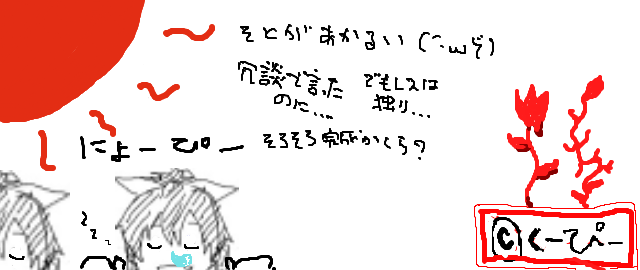 そとがあかるい(´･ω･`)
冗談で言った
のに…
でもレスは
独り…
にょーぴー
そろそろ完成かしら?
zzz
©くーぴー